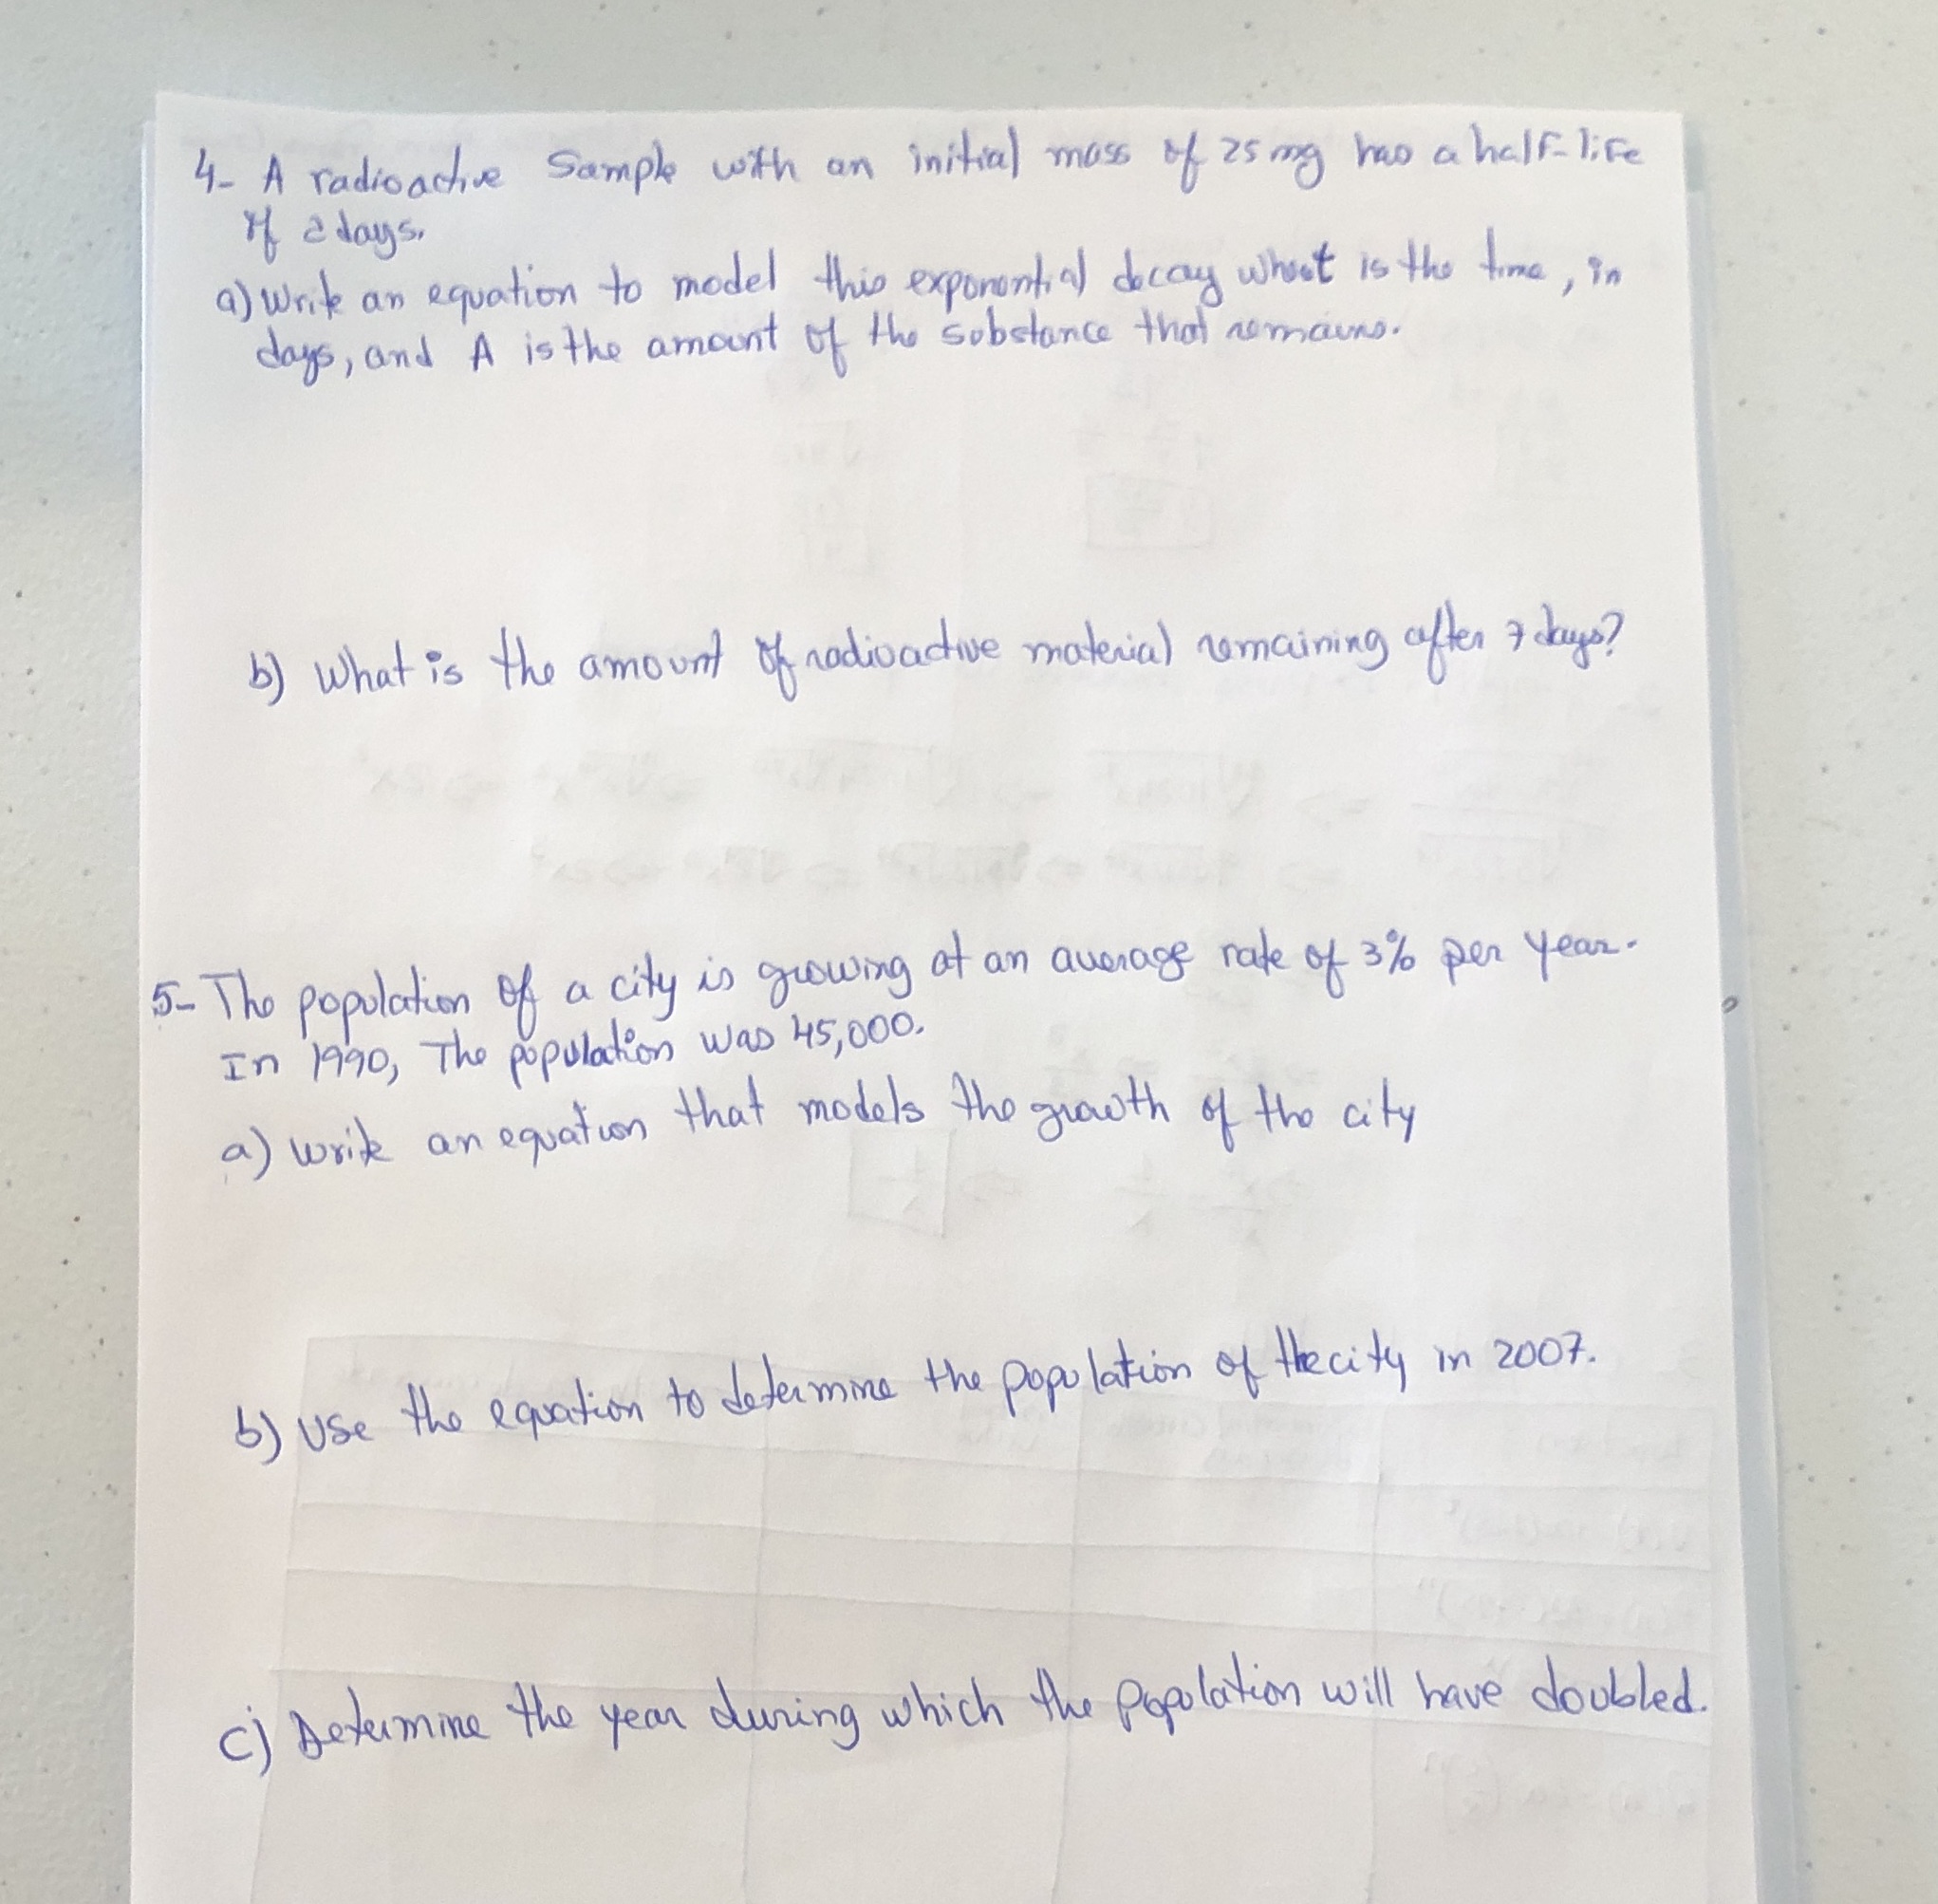 4- A radioactive Sample with an initial mass of 25 mg has a half-life
of 2 days.
a) Write an equation to model this exponential decay what is the time, in
days, and A is the amount of the substance that remains.
b) What is the amount of radioactive material remaining after 7 days?
5- The population of a city is growing at an average rate of 3% per year.
In 1990, The population was 45,000.
a) write an equation that models the growth of the city
b) Use the equation to determine the population of the city in 2007.
c) Determine the year during which the Population will have doubled.